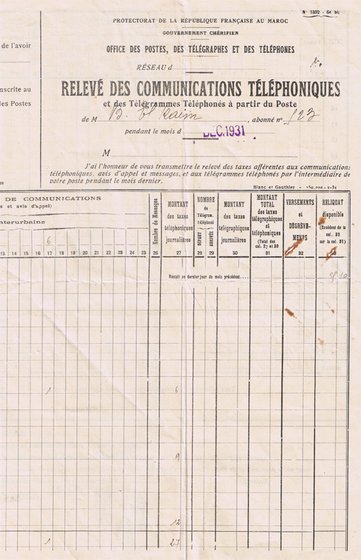 N° 1392
PROTECTORAT DE LA RÉPUBLIQUE FRANÇAISE AU MAROC
GOUVERNEMENT CHÉRIFIEN
OFFICE DES POSTES, DES TÉLÉGRAPHES ET DES TÉLÉPHONES
RÉSEAU d
RELEVÉ DES COMMUNICATIONS TÉLÉPHONIQUES
et des Télégrammes Téléphonés à partir du Poste
de M , abonné n° 123
pendant le mois d DEC. 1931
M
J'ai l'honneur de vous transmettre le relevé des taxes afférentes aux communications
téléphoniques, avis d'appel et messages, et aux télégrammes téléphonés par l'intermédiaire de
votre poste pendant le mois dernier.
de l'avoir
inscrite au
des Postes
DE COMMUNICATIONS
s et avis d'appel)
interurbaine
6
13 14 15 16 17 18 19 20 21 22 23 24 25
Nombre de Messages
26
MONTANT
des taxes
téléphoniques
journalières
27
NOMBRE
de
Télégram.
téléphonés
DÉPART
ARRIVÉE
28 29
MONTANT
des taxes
télégraphiques
journalières
30
MONTANT
TOTAL
des taxes
télégraphiques
et
téléphoniques
(Total des
col. 27 et 30)
31
VERSEMENTS
et
DÉGRÈVE-
MENTS
32
RELIQUAT
disponible
(Excédent de la
col. 32
sur la col. 31)
Reliquat au dernier jour du mois précédent
1
6
9
12
1
27